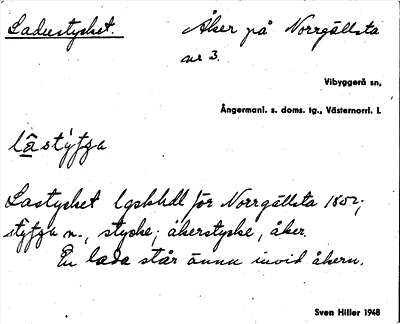 Ladustycket. Åker på Norrgällsta
nr 3.
Vibyggerå sn,
Ångermanl. s. doms. tg., Västernorrl. l.
Lastycket Lgskhdl för Norrgällsta 1852;
n., stycke; åkerstycke, åker.
En lada står ännu invid åkern.
Sven Hiller 1948